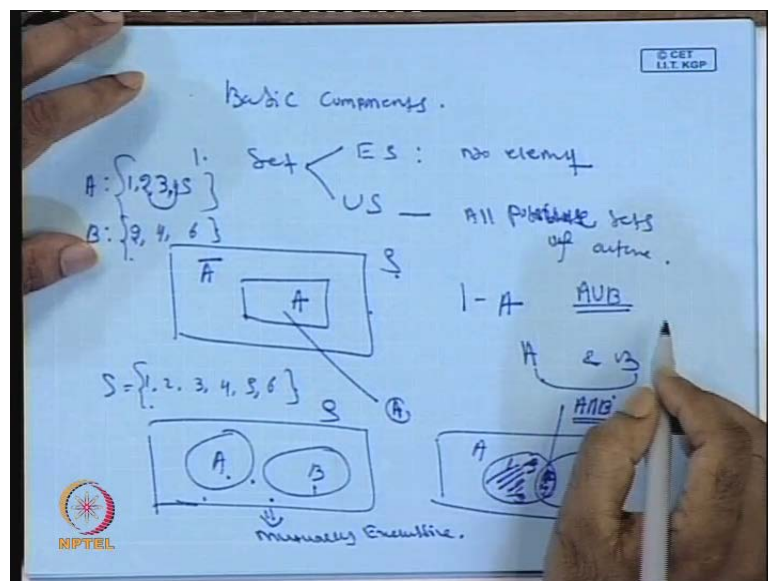 © CET
I.I.T. KGP
Basic Components.
Set
ES : no element
US — All possible sets
of outcome.
A: {1, 2, 3, 5}
1.
B: {2, 4, 6}
Ā
A
S
1 - A
A∪B
A & B
A∩B
A
S = {1, 2, 3, 4, 5, 6}
S
A
B
A
Mutually Exclusive.
NPTEL